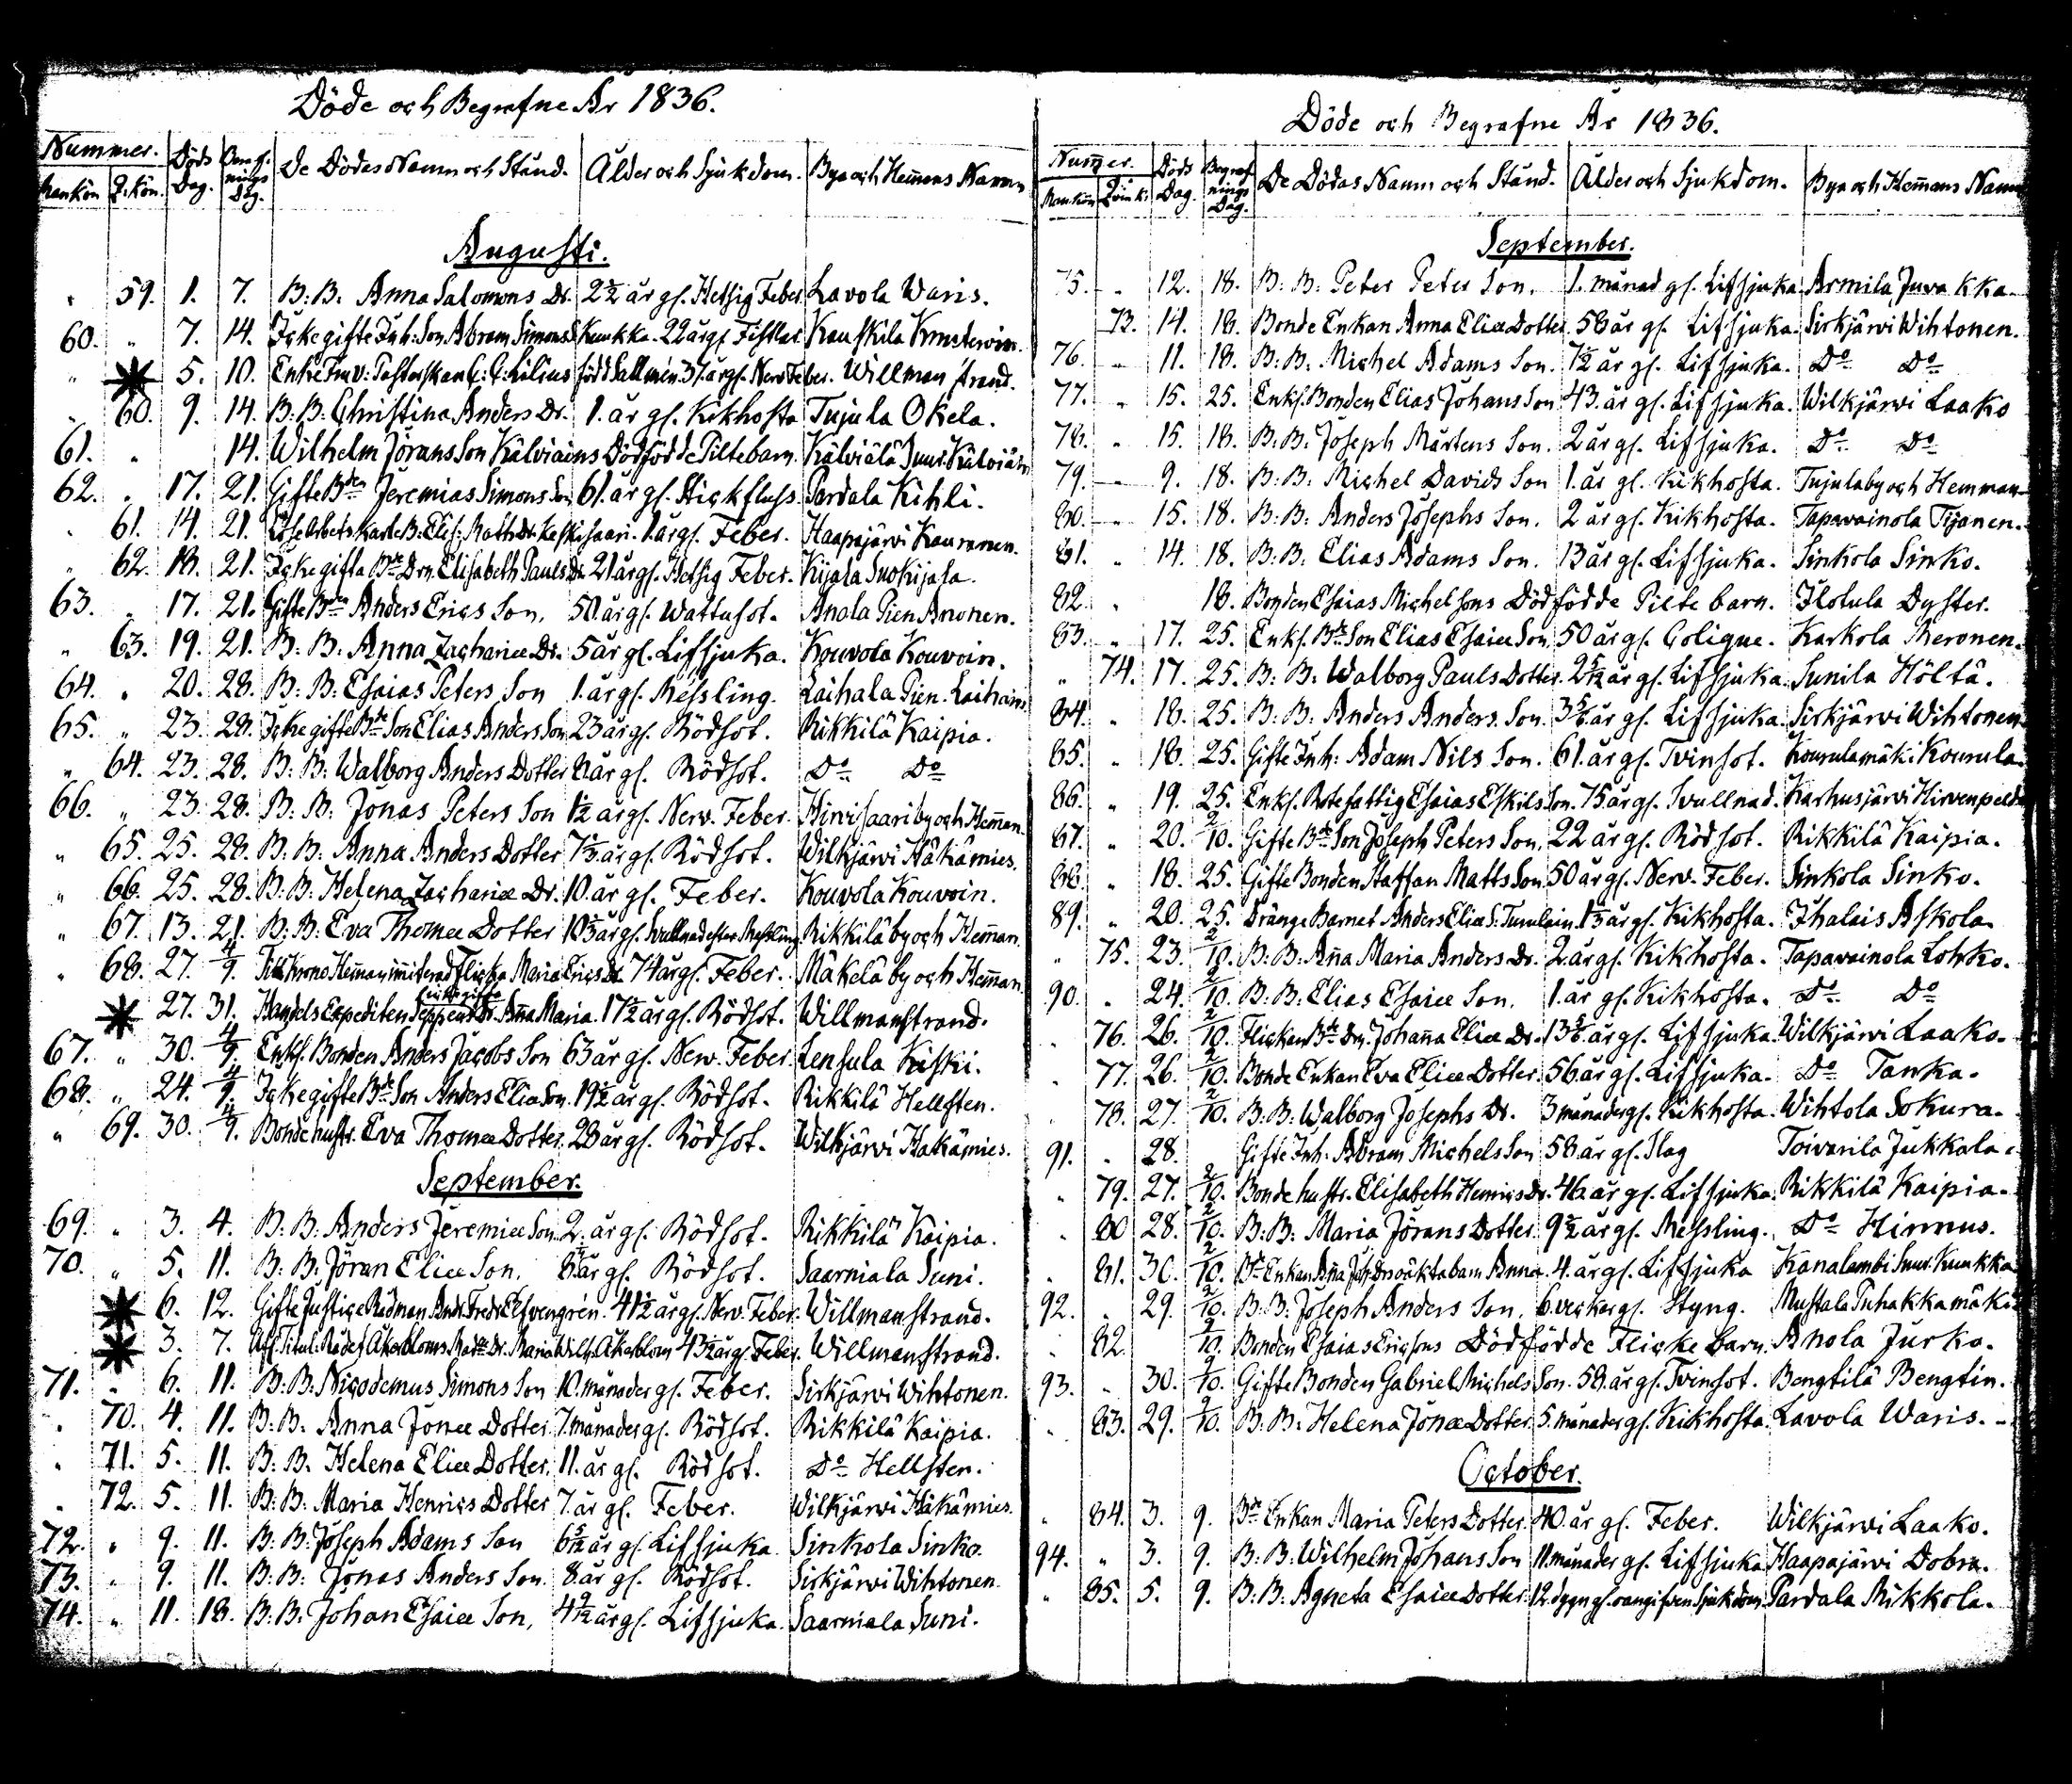 Döde och Begrafne År 1836.
Nummer. Döds Dag. Begrafnings Dag. De Dödes Namn och Stånd. Ålder och Sjukdom. Bya och Hemans Namn
Mankön Q.kön.
Augusti.
„ 59. 1. 7. B: B: Anna Salomons Dr. 2½ år gl. Hetsig Feber. Lavola Waris.
60. „ 7. 14. Icke gifte Inh: Son Abram Simons S. Kunkka. 22 år gl. Kauskila
„ 5. 10. Enke Fruv: Pastorskan C: C: Lilius född Sallmén. 37 år gl. Nerv Feber. Willmanstrand.
„ 60. 9. 14. B: B: Christina Anders Dr. 1. år gl. Kikhosta Tujula Okela.
61. „ 14. Wilhelm Jörans Son Kälviäins Dödfödde Piltebarn. Kälviälä Suur Kälviäin
62. „ 17. 21. Gifte Bden Jeremias Simons Son 61. år gl. Stickfluss. Pardala Kihli.
„ 61. 14. 21. B: Elis: Matts Dr. Keskisaari. 1. år gl. Feber. Haapajärvi Kauranen.
„ 62. 18. 21. Icke gifta Bde Drn. Elisabeth Pauls Dr. 21 år gl. Hetsig Feber. Kijala Suokijala.
63. „ 17. 21. Gifte Bden Anders Erics Son. 50. år gl. Wattusot. Anola Pien Anonen.
„ 63. 19. 21. B: B: Anna Zachariæ Dr. 5 år gl. Lifsjuka. Kouvola Kouvoin.
64. „ 20. 28. B: B: Esaias Peters Son 1. år gl. Messling. Laihala Pien. Laihain
65. „ 23. 28. Icke gifte Bde Son Elias Anders Son 23 år gl. Rödsot. Rikkilä Kaipia.
„ 64. 23. 28. B: B: Walborg Anders Dotter 8 år gl. Rödsot. Do Do
66. „ 23. 28. B: B: Jonas Peters Son 1½ år gl. Nerv. Feber. Hinisaari by och Heman.
„ 65. 25. 28. B: B: Anna Anders Dotter 7⅓ år gl. Rödsot. Wilkjärvi Häkämies.
„ 66. 25. 28. B: B: Helena Zachariæ Dr. 10. år gl. Feber. Kouvola Kouvoin.
„ 67. 13. 21. B: B: Eva Thomæ Dotter 10⅓ år gl. Svullnad efter Messling. Rikkilä by och Heman.
„ 68. 27. 4/9. Flicka Maria Erics Dr. 74 år gl. Feber. Mäkelä by och Heman.
27. 31. Handels Expediten Dr. Anna Maria. 17½ år gl. Rödsot. Willmanstrand.
67. „ 30. 4/9. Enkl. Bonden Anders Jacobs Son 63 år gl. Nerv. Feber. Lensula Kiski.
68. „ 24. 4/9. Icke gifte Bde Son Anders Eliæ Son. 19½ år gl. Rödsot. Rikkilä Hellsten.
„ 69. 30. 4/9. Bonde hustr. Eva Thomæ Dotter. 28 år gl. Rödsot. Wilkjärvi Hakämies.
September.
69. „ 3. 4. B: B: Anders Jeremiæ Son 2. år gl. Rödsot. Rikkilä Kaipia.
70. „ 5. 11. B: B: Jöran Eliæ Son. år gl. Rödsot. Saarniala Suni.
6. 12. Gifte Justice Rådman Andr. Fredr. Elfvengrén. 41½ år gl. Nerv. Feber. Willmanstrand.
3. 7. Åkerbloms Dr. Maria Wilh: Åkerblom 43½ år gl. Feber. Willmanstrand.
71. „ 6. 11. B: B: Nicodemus Simons Son 10. månader gl. Feber. Sirkjärvi Wihtonen.
„ 70. 4. 11. B: B: Anna Jonæ Dotter 7. månader gl. Rödsot. Rikkilä Kaipia.
„ 71. 5. 11. B: B: Helena Eliæ Dotter. 11. år gl. Rödsot. Do Hellsten.
„ 72. 5. 11. B: B: Maria Henrics Dotter 7. år gl. Feber. Wilkjärvi Häkämies.
72. „ 9. 11. B: B: Joseph Adams Son år gl. Lifsjuka Sinkola Sinko.
73. „ 9. 11. B: B: Jonas Anders Son. 8. år gl. Rödsot. Sirkjärvi Wihtonen.
74. „ 11. 18. B: B: Johan Esaiæ Son, år gl. Lifsjuka. Saarniala Suni.
Döde och Begrafne År 1836.
Numer. Döds Dag. Begrafnings Dag. De Dödas Namn och Stånd. Ålder och Sjukdom. Bya och Hemans Namn
Mankön Qvink:
September.
75. „ 12. 18. B: B: Peter Peters Son. 1. månad gl. Lifsjuka. Armila Juvakka.
„ 73. 14. 18. Bonde Enkan Anna Eliæ Dotter. 58 år gl. Lifsjuka. Sirkjärvi Wihtonen.
76. „ 11. 18. B: B: Michel Adams Son. 7½ år gl. Lifsjuka. Do Do
77. „ 15. 25. Enkl. Bonden Elias Johans Son 43. år gl. Lifsjuka. Wilkjärvi Laako
78. „ 15. 18. B: B: Joseph Mårtens Son. 2 år gl. Lifsjuka. Do Do
79. „ 9. 18. B: B: Michel Davids Son 1. år gl. Kikhosta. Tujula by och Hemman
80. „ 15. 18. B: B: Anders Josephs Son. 2 år gl. Kikhosta. Tapavainola Tijanen.
81. „ 14. 18. B: B: Elias Adams Son. 13 år gl. Lifsjuka. Sinkola Sinko.
82. „ 18. Bonden Esaias Michelsons Dödfödde Pilte barn. Ilotula Dyster.
83. „ 17. 25. Enkl. Bde Son Elias Esaiæ Son 50 år gl. Colique. Karkola Meronen.
„ 74. 17. 25. B: B: Walborg Pauls Dotter. 2 5/12 år gl. Lifsjuka Sunila Höltä.
84. „ 18. 25. B: B: Anders Anders Son. 3⅚ år gl. Lifsjuka. Sirkjärvi Wihtonen.
85. „ 18. 25. Gifte Inh: Adam Nils Son. 61. år gl. Tvinsot. Kourulamäki Kourula.
86. „ 19. 25. Enkl. Rotefattig Esaias Eskils Son. 75 år gl. Svullnad. Karhusjärvi Hirvenpeldo
87. „ 20. 2/10. Gifte Bde Son Joseph Peters Son. 22 år gl. Rödsot. Rikkilä Kaipia.
88. „ 18. 25. Gifte Bonden Staffan Matts Son 50 år gl. Nerv. Feber. Sinkola Sinko.
89. „ 20. 25. Dränge Barnet Anders Eliæ S: 1⅓ år gl. Kikhosta. Ihalais Askola.
„ 75. 23. 2/10. B: B: Ana Maria Anders Dr. 2 år gl. Kikhosta. Tapavainola Lohko.
90. „ 24. 2/10. B: B: Elias Esaiæ Son. 1. år gl. Kikhosta. Do Do
„ 76. 26. 2/10. Flickan Bde Dr. Johana Eliæ Dr. 13⅚ år gl. Lifsjuka. Wilkjärvi Laako.
„ 77. 26. 2/10. Bonde Enkan Eva Eliæ Dotter. 56 år gl. Lifsjuka. Do Tanka.
„ 78. 27. 2/10. B: B: Walborg Josephs Dr. 3 månader gl. Kikhosta. Wihtola Sokura.
91. „ 28. Gifte Inh: Abram Michels Son 58 år gl. Slag Toivarila Jukkala.
„ 79. 27. 2/10. Bonde hustr. Elisabeth Henrics Dr. 46 år gl. Lifsjuka. Rikkilä Kaipia.
„ 80 28. 2/10. B: B: Maria Jörans Dotter. 9½ år gl. Messling. Do Hirmus.
„ 81. 30. 2/10. Bde Enkan Ana Joh: Drs oäkta barn Anna. 4. år gl. Lifsjuka Kanalambi Suur. Kunkka
92. „ 29. 2/10. B: B: Joseph Anders Son. 6. veckor gl. Styng. Mustala Puhakkamäki
„ 82. 2/10. Bonden Esaias Ericsons Dödfödde Flicke barn. Anola Jurko.
93. „ 30. 2/10. Gifte Bonden Gabriel Michels Son. 58. år gl. Tvinsot. Bengtilä Bengtin.
„ 83. 29. 2/10. B: B: Helena Jonæ Dotter. 5. månader gl. Kikhosta. Lavola Waris.
October.
„ 84. 3. 9. Bde Enkan Maria Peters Dotter. 40. år gl. Feber. Wilkjärvi Laako.
94. „ 3. 9. B: B: Wilhelm Johans Son 11. månader gl. Lifsjuka Haapajärvi Dobra.
„ 85. 5. 9. B: B: Agneta Esaiæ Dotter. 12. dygn gl. oangifven Sjukdom. Pardala Mikkola.